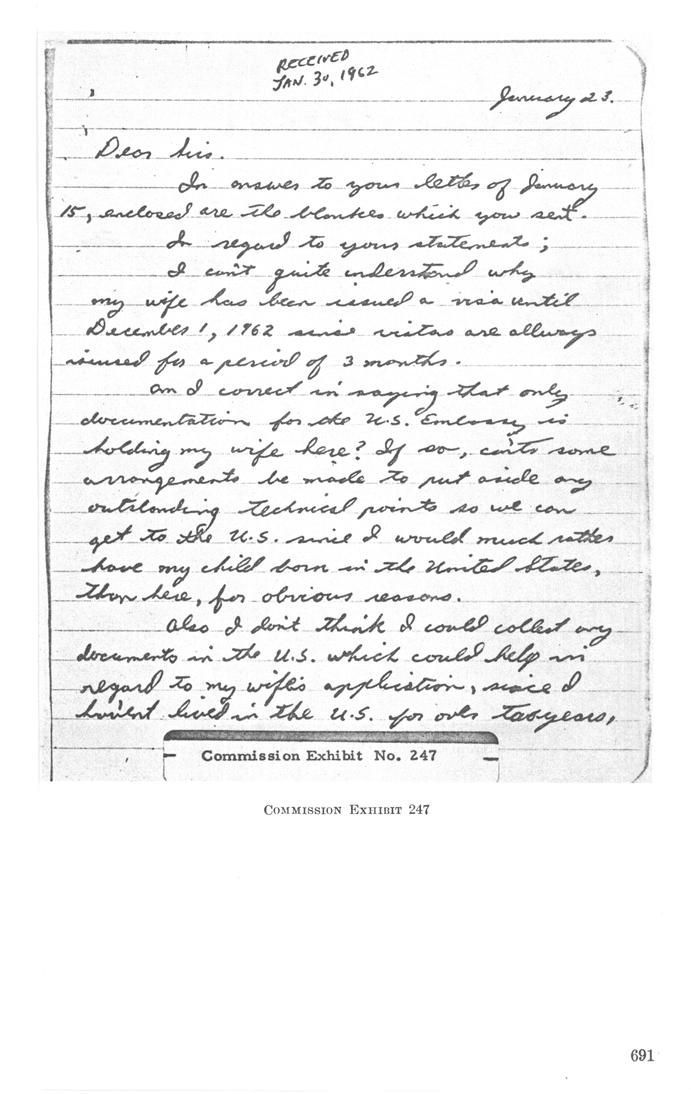 RECEIVED
JAN. 30, 1962
January 23.
Dear Sirs.
In answer to your letter of January
15, enclosed are the blankes which you sent.
In regard to your statements;
I can't quite inderstand why
my wife has been issued a visa until
December 1, 1962 since vistas are allways
issused for a period of 3 months.
am I correct in saying that only
documentation for the U.S. Embassy is
holding my wife here? If so, can't some
arrangements be made to put aside any
outstanding technical points so we can
get to the U.S. since I would much rather
have my child born in the United States,
than here, for obvious reasons.
Also I don't think I could collect any
documents in the U.S. which could help in
regard to my wife's application, since I
haven't lived in the U.S. for over years,
Commission Exhibit No. 247
COMMISSION EXHIBIT 247
691